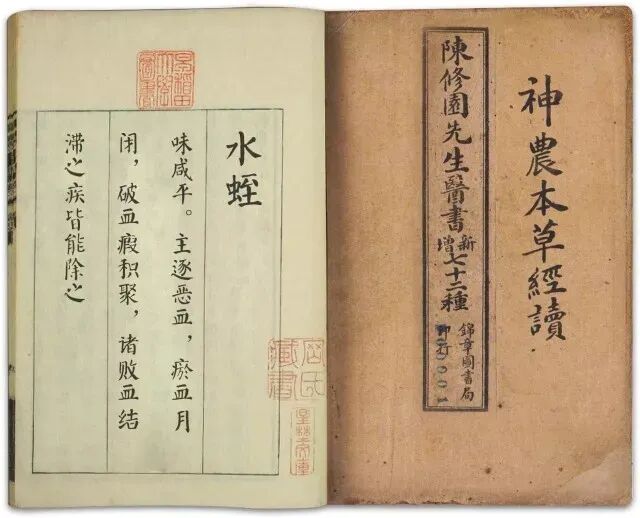 神農本草經讀
陳修園先生醫書新增七十二種
錦章圖書局
印行
水蛭
味咸平。主逐恶血，瘀血月
闭，破血瘕积聚，诸败血结
滞之疾皆能除之
藏書